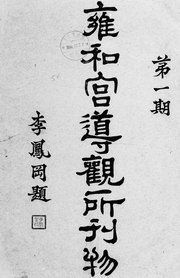 第一期
雍和宫導觀所刊物
李鳳岡題